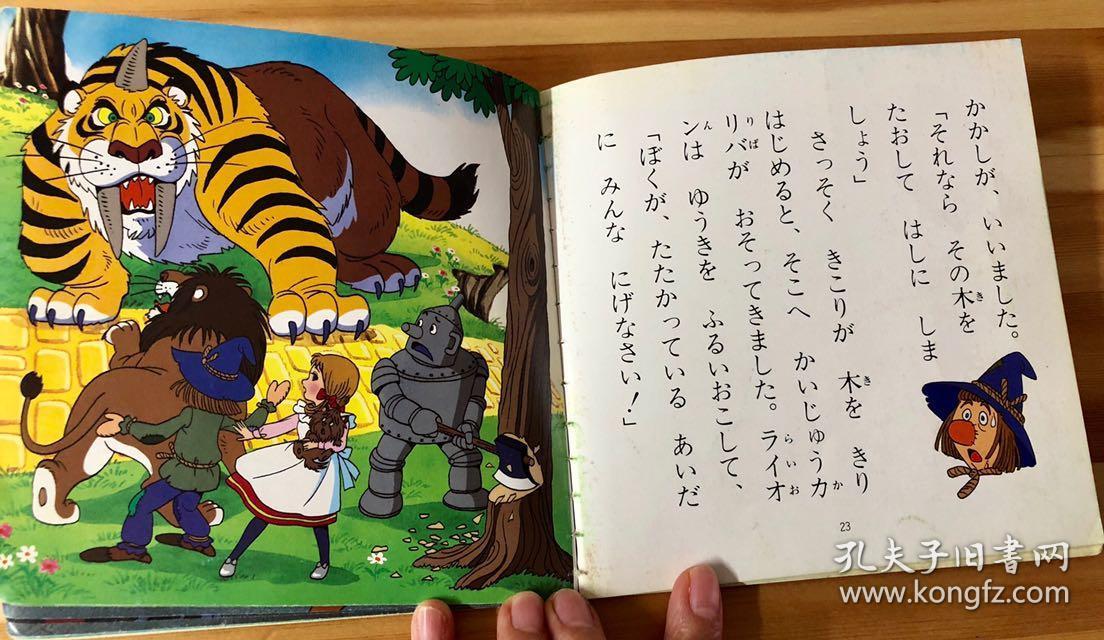 かかしが、いいました。
「それなら その木を
たおして はしに しま
しょう」
さっそく きこりが 木を きり
はじめると、そこへ かいじゅうカ
リバが おそってきました。ライオ
ンは ゆうきを ふるいおこして、
「ぼくが、たたかっている あいだ
に みんな にげなさい!」
23
孔夫子旧書网
www.kongfz.com